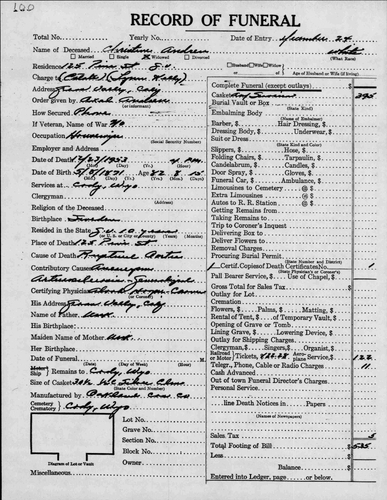 100
RECORD OF FUNERAL
Total No. Yearly No. Date of Entry December 24
Name of Deceased Christine Andreen White
Married Single Widowed Divorced Husband Wife Widow of (What Race)
Residence 125 Pine St. Age of Husband or Wife (if living)
Charge to (Estate)
Address Grass Valley, Calif
Order given by
(or informant)
How Secured Phone
If Veteran, Name of War No
(Social Security Number)
Occupation Housewife
Employer and Address
Date of Death 12/23/1953 4 P.M.
(Mo.) (Day) (Yr.) (Hour)
Date of Birth 5/8/1871 Age 82 8 15
(Mo.) (Day) (Yr.) (Yrs.) (Mos.) (Days)
Services at Cody, Wyo
Clergyman
Religion of the Deceased
Birthplace Sweden
Resided in the State 10 years
(or U. S. or City or County) (Years) (Months)
Place of Death 125 Pine St
Cause of Death Ruptured Aortic
Contributory Cause Aneurysm
Arteriosclerosis - Generalized
Certifying Physician
(or Coroner)
His Address Grass Valley, Calif
Name of Father Unk
His Birthplace:
Maiden Name of Mother Unk.
Her Birthplace:
Date of Funeral M.
(Date) (Day of Week) (Hour)
Motor
Ship Remains to Cody, Wyo
Size of Casket
(State Color and Number)
Manufactured by
Cemetery
Crematory Cody, Wyo
Lot No.
Grave No.
Section No.
Block No.
Owner
Diagram of Lot or Vault
Miscellaneous
Complete Funeral (except outlays) $
Casket 395
Burial Vault or Box
(State Kind)
Embalming Body
(Name of Embalmer)
Barber, $ Hair Dressing, $
Dressing Body, $ Underwear, $
Suit or Dress
(State Kind and Color)
Slippers, $ Hose, $
Folding Chairs, $ Tarpaulin, $
Candelabrum, $ Candles, $
Door Spray, $ Gloves, $
Funeral Car, $ Ambulance, $
Limousines to Cemetery @ $
Extra Limousines @ $
Autos to R. R. Station @ $
Getting Remains
Taking Remains
Trip to Coroner's Inquest
Delivering Box to
Deliver Flowers to
Removal Charges
Procuring Burial Permit
(State Number and District)
1 Certif. Copies of Death Certificates No. 1
(State Physician's or Coroner's)
Pall Bearer Service, $ Use of Chapel, $
Gross Total for Sales Tax $
Outlay for Lot
Cremation
Flowers, $ Palms, $ Matting, $
Rental of, $ of Temporary Vault, $
Opening of Grave or Tomb
Lining Grave, $ Lowering Device, $
Outlay for Shipping Charges
Clergyman, $ Singers, $ Organist, $
Railroad or Motor Tickets, Aeroplane Service, $ 122
Telegr., Phone, Cable or Radio Charges 11
Cash Advanced
Out of town Funeral Director's Charges
Personal Service
line Death Notices in Papers
(Names of Newspapers)
Sales Tax $ 5
Total Footing of Bill $ 535
Less
Balance $
Entered into Ledger, page or below.